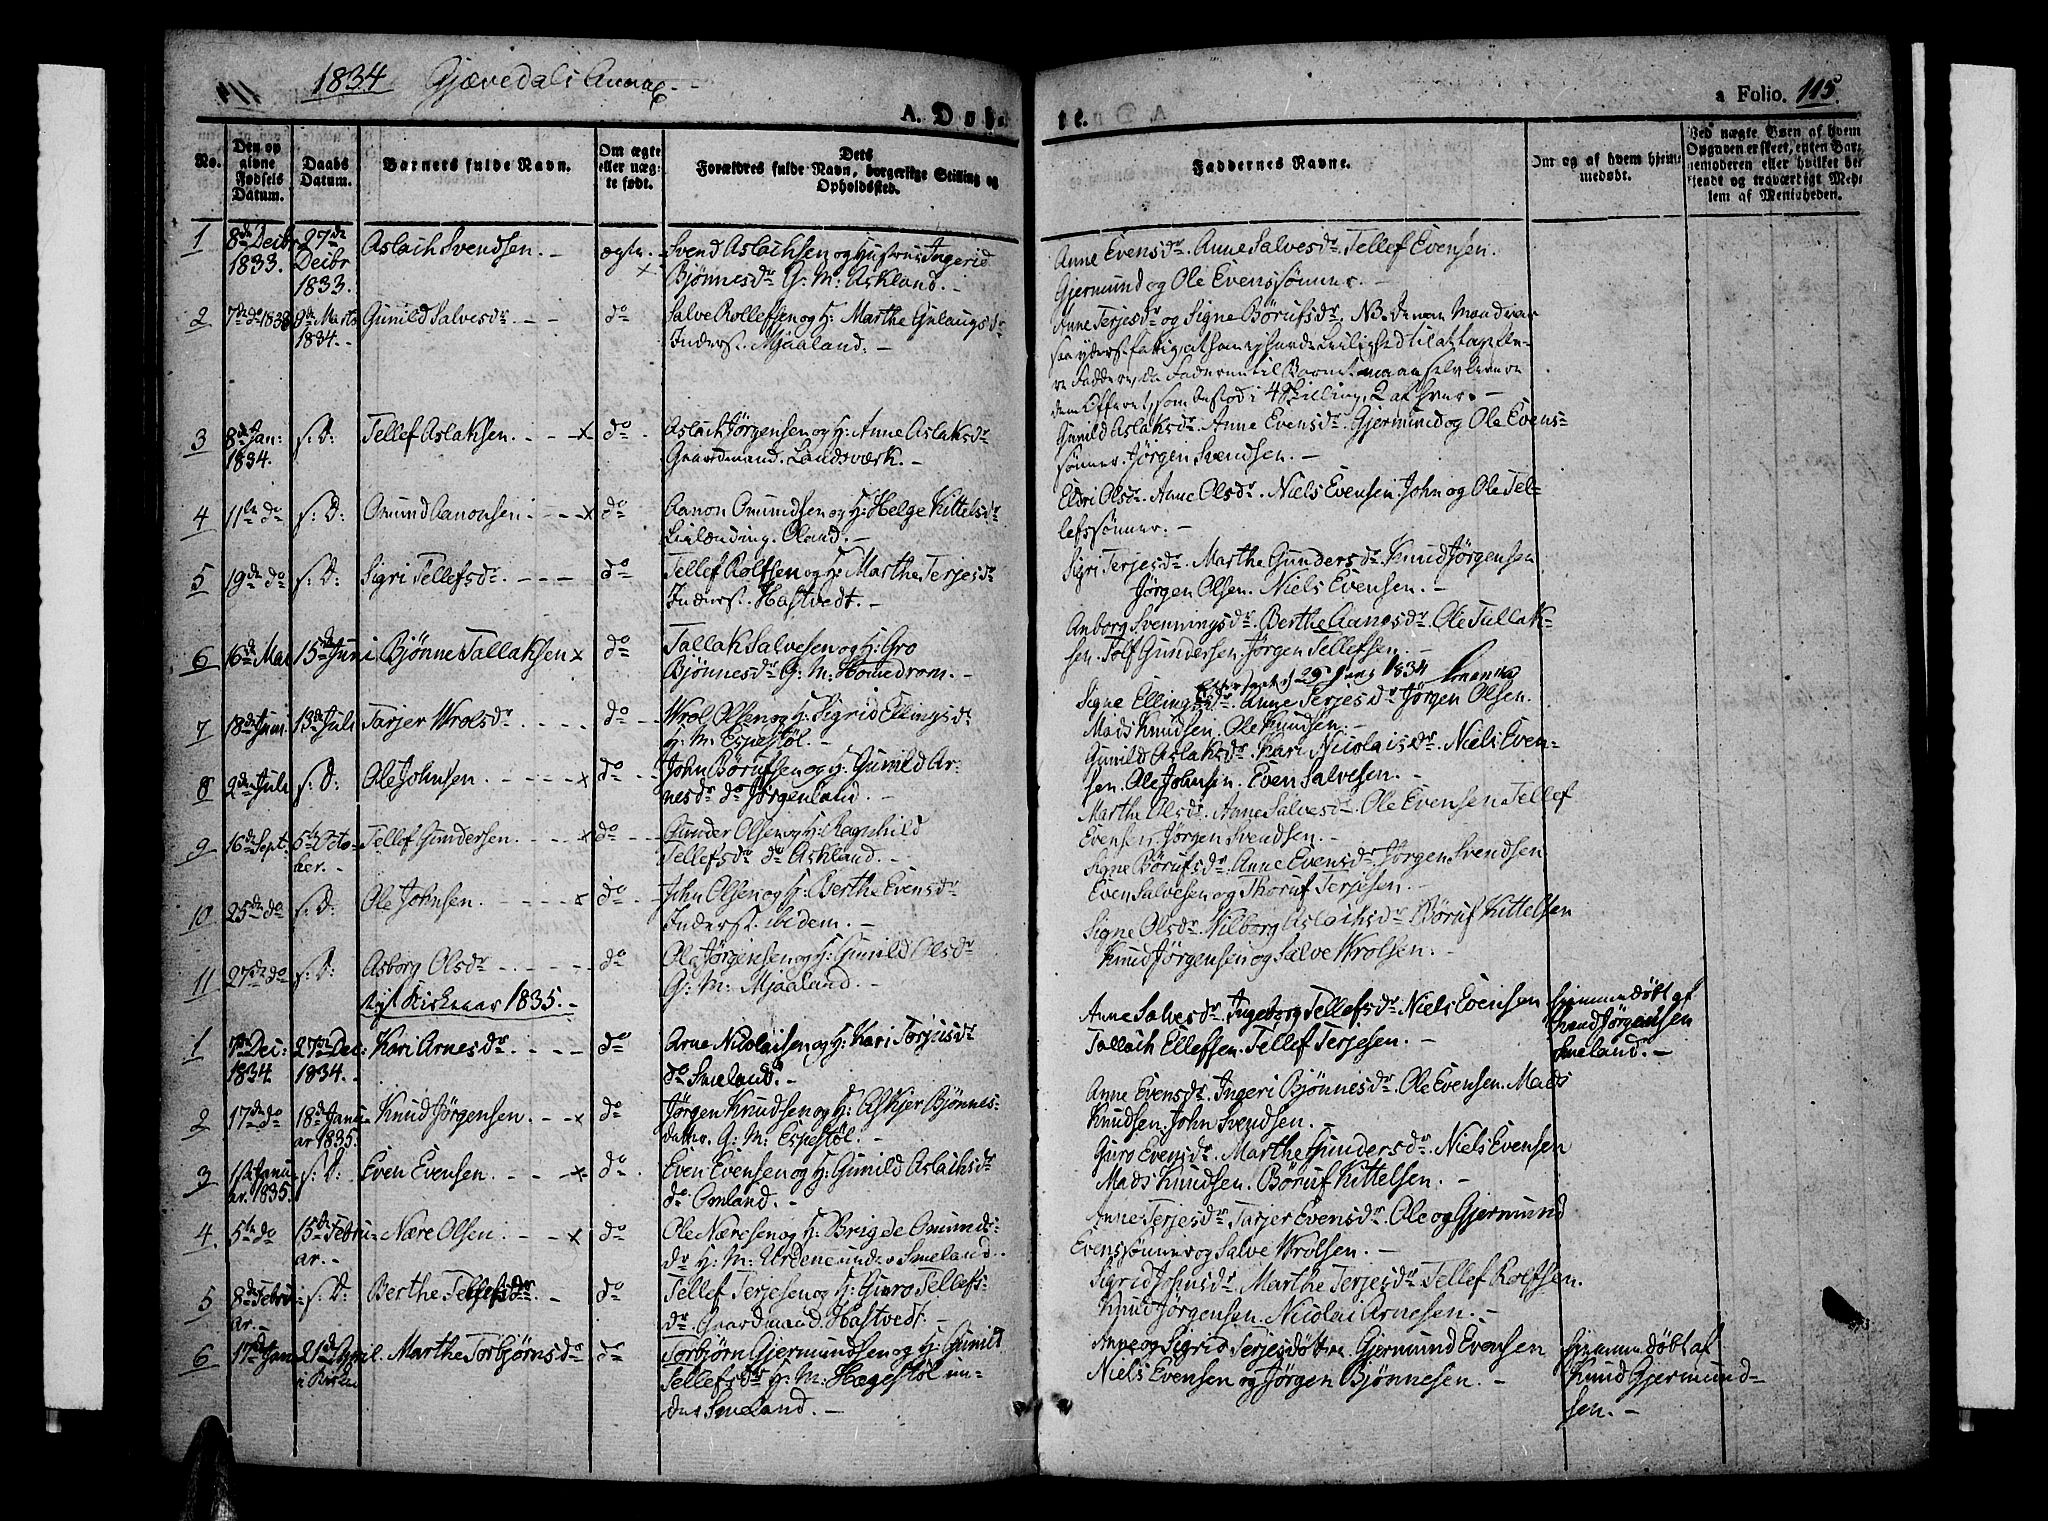 1834 Gjævedals Annex
114
A. Døbte.
a Folio. 115.
No.
Den opgivne Fødsels Datum.
Daabs Datum.
Barnets fulde Navn.
Om ægte eller uægte født.
Dets Forældres fulde Navn, borgerlige Stilling og Opholdssted.
Faddernes Navne.
Om og af hvem hjemmedøbt.
1 8de Decbr 27de Aslach Svendsen. ægte. Svend Aslachsen og Hustrue Ingerid
1833. Decbr 1833. Bjønnesdr G: M: Askland.
Anne Evensdr. Anne Salvesdr. Tellef Evensen.
Gjermund og Ole Evenssønner.
2 7de do 1833 9de Marts 1834. Gunild Salvesdr do Salve Rollefsen og H: Marthe Gulaugsdr
Inderst. Mjaaland.
Anne Terjesdr og Signe Børufsdr. NB. denne Mand var
dem Offeret, som bestod i 4 Skilling, 2 af hver.
3 8de Jan: 1834. s: D: Tellef Aslaksen. do Aslach Jørgensen og H: Anne Aslaksdr
Gaardmand. Landsværk.
Gunild Aslaksdr. Anne Evensdr. Gjermund og Ole Evens-
sønner. Jørgen Svendsen.
4 11te do s: D: Omund Aanonsen do Aanon Omundsen og H: Helge Kittelsdr
Oland.
Eldri Olsdr. Anne Olsdr. Niels Evensen. John og Ole Tel-
lefssønner.
5 19de do s: D: Sigri Tellefsdr. do Tellef Rolfsen og H: Marthe Terjesdr
Inderst. Hastvedt.
Sigri Terjesdr. Marthe Gundersdr. Knud Jørgensen
Jørgen Olsen. Niels Evensen.
6 16de Mai 15de Juni Bjønne Tallaksen do Tallak Salvesen og H: Gro
Bjønnesdr G: M: Homdrom.
Anborg Svenningsdr. Berthe Aanesdr. Ole Tallak-
sen. Tolf Gundersen. Jørgen Tellefsen.
29 Juni 1834
7 18de Juni. 13de Juli Tarjer Wrolsdr. do Wrol Olsen og H: Sigrid Ellingsdr
H: M: Espestøl.
Signe Ellingsdr. Anne Terjesdr Jørgen Olsen.
Mads Knudsen. Ole Knudsen.
8 2den Juli s: D: Ole Johnsen. do John Børufsen og H: Gunild Ar-
nesdr do Jørgenland.
Gunild Aslaksdr. Kari Nicolaisdr. Niels Even-
sen. Ole Johnsen. Even Salvesen.
9 16de Sept. 5te Octo- Tellef Gundersen. do Gunder Olsen og H: Ragnhild
ber. Tellefsdr do Askland.
Marthe Olsdr. Anne Salvesdr. Ole Evensen. Tellef
Evensen. Jørgen Svendsen.
10 25de do s: D: Ole Johnsen. do John Olsen og H: Berthe Evensdr
Inderst. ibidem.
Signe Børufsdr. Anne Evensdr. Jørgen Svendsen
Even Salvesen og Thoruf Terjesen.
11 27de do s: D: Asborg Olsdr do Ole Jørgensen og H: Gunild Olsdr
G: M: Mjaaland.
Signe Olsdr. Nilborg Aslachsdr Børuf Kittelsen
Knud Jørgensen og Salve Wrolsen.
Nyt Kirkeaar 1835.
1 7de Dec: 27de Dec: Kari Arnesdr. do Arne Nicolaisen og H: Kari Torjusdr
1834. 1834. do Smeland.
Anne Salvesdr. Ingeborg Tellefsdr. Niels Evensen
Tallach Ellefsen. Tellef Terjesen.
Hjemmedøbt af
Svend Jørgensen
Smeland.
2 17de do 18de Janu- Knud Jørgensen. do Jørgen Knudsen og H: Askjer Bjønnes-
ar 1835. datter. G: M: Espestøl.
Anne Evensdr. Ingeri Bjønnesdr. Ole Evensen. Mads
Knudsen. John Svendsen.
3 1ste Janu- s: D: Even Evensen. do Even Evensen og H: Gunild Aslachsdr
ar. 1835. do Omland.
Guro Evensdr. Marthe Gundersdr. Niels Evensen
Mads Knudsen. Børuf Kittelsen.
4. 5te do 15de Febru- Nære Olsen. do Ole Næresen og H: Brigde Omunds-
ar. dr H: M: Urdene under Smeland.
Anne Terjesdr. Tarjer Evensdr. Ole og Gjermund
Evenssønner og Salve Wrolsen.
5 8de Febru- s: D: Berthe Tellefsdr. do Tellef Terjesen og H: Guro Tellefs-
ar. dr. Gaardmand. Hastvedt.
Sigrid Johnsdr. Marthe Terjesdr. Tellef Rolfsen.
Knud Jørgensen. Nicolai Arnesen.
6 17de Jan 21de April. Marthe Torbjørnsdr do Torbjørn Gjermundsen og H: Gunild
i Kirken Tellefsdr H: M: Hægestøl un-
der Smeland.
Anne og Sigrid Terjesdøttre. Gjermund Evensen
Niels Evensen og Jørgen Bjønnesen.
Hjemmedøbt af
Knud Gjermund-
sen.